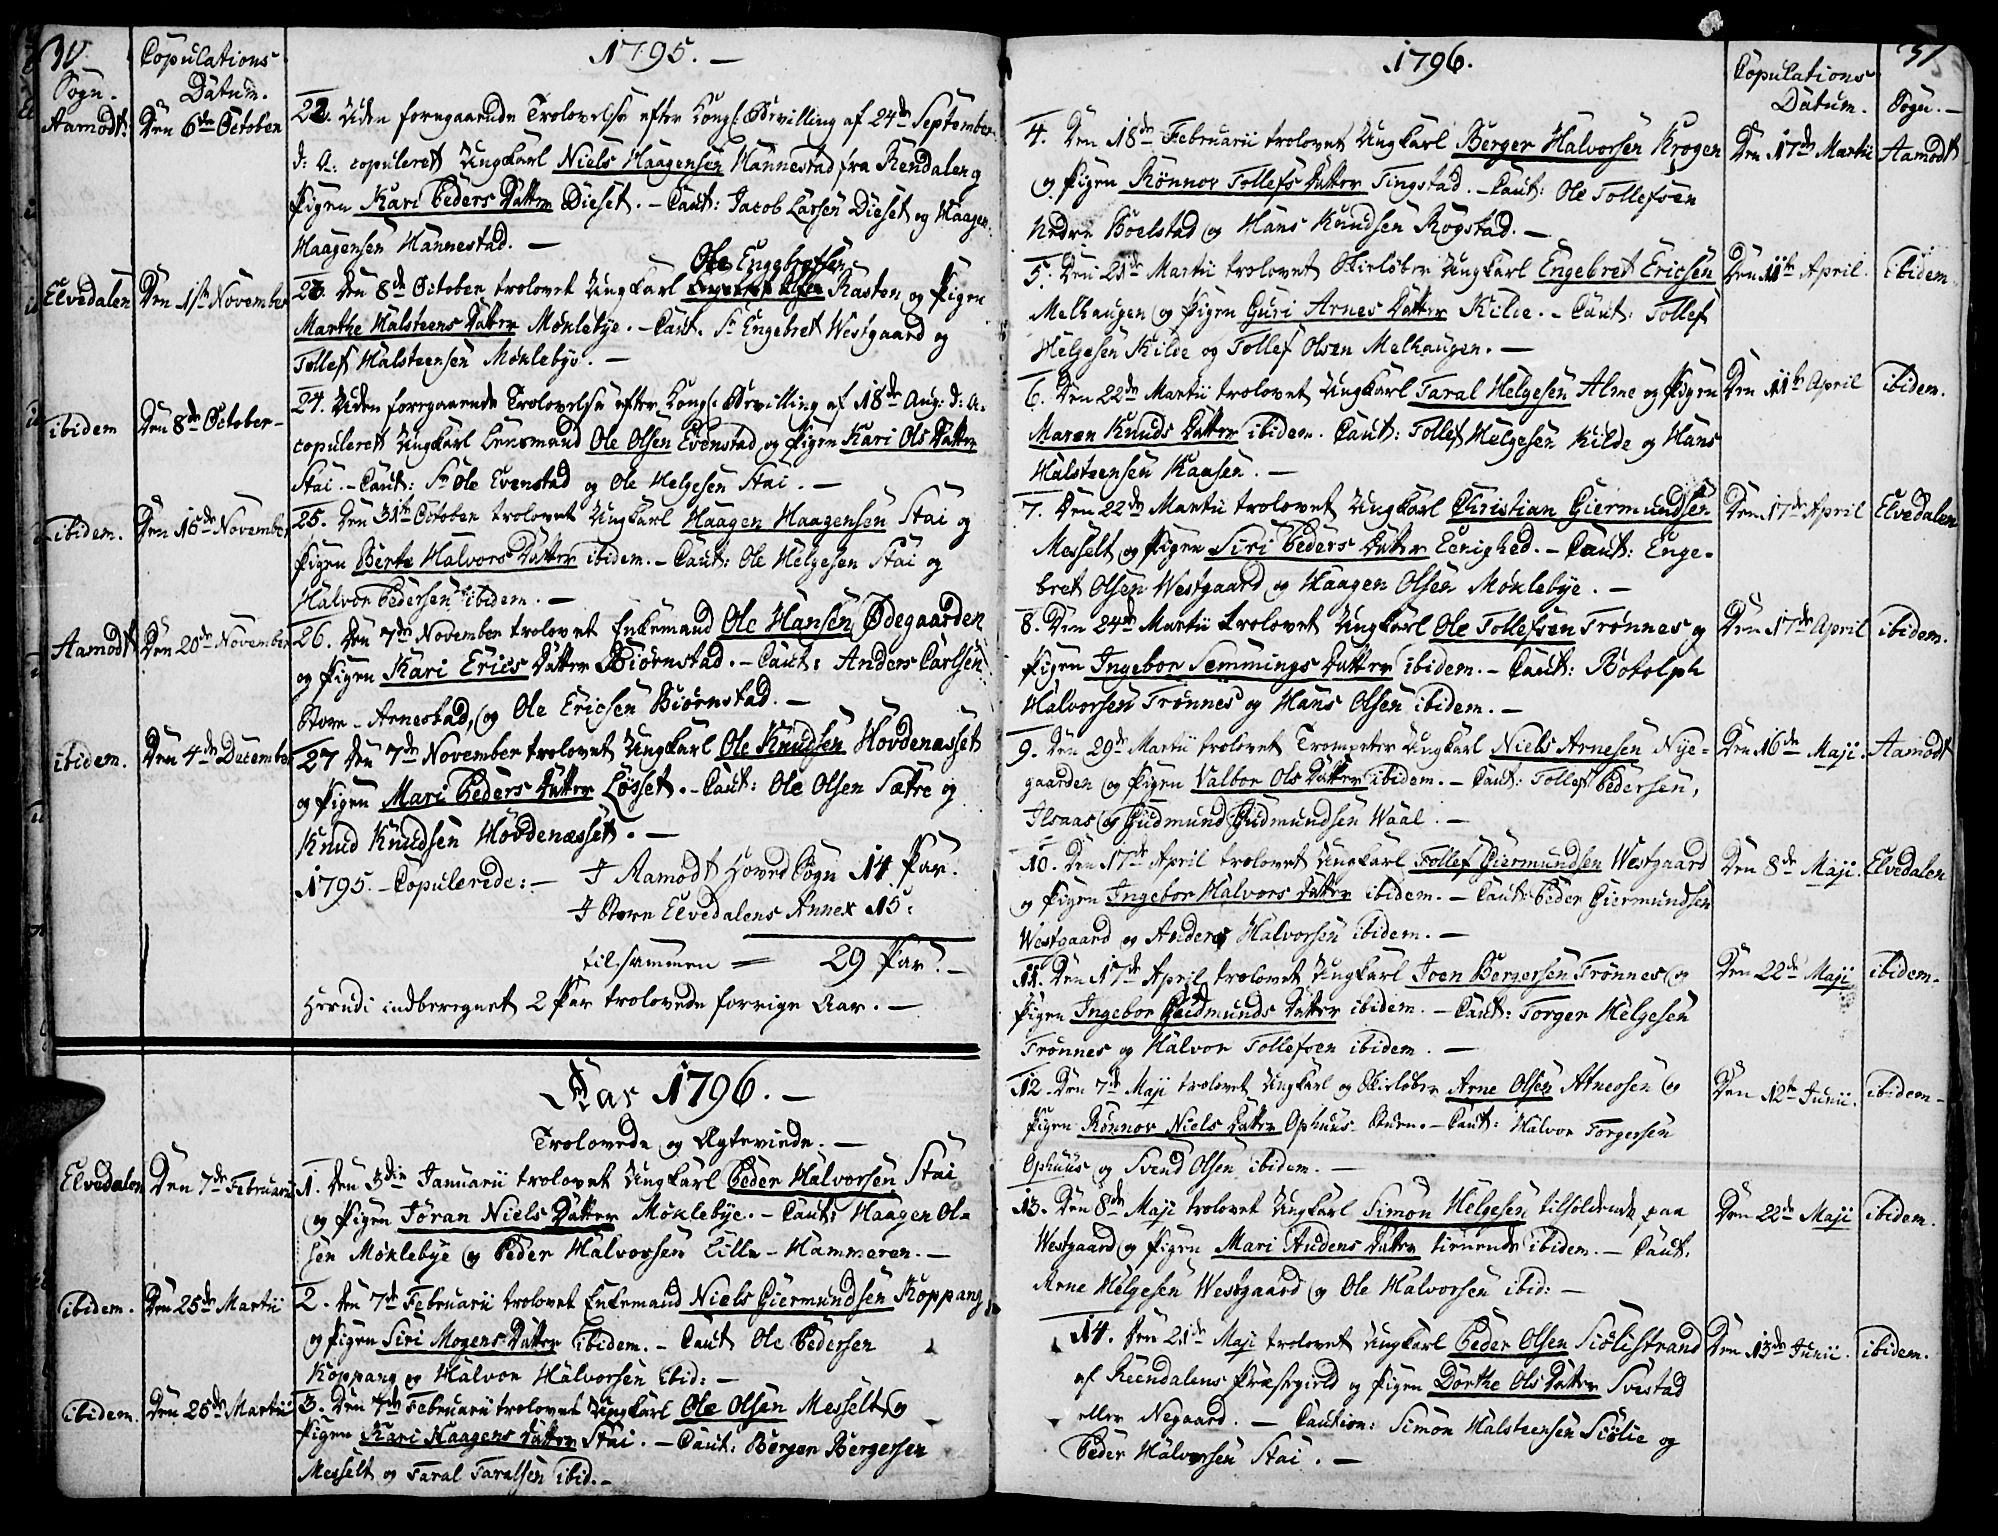 30.
1795. —
Sogn.
Copulations Datum.
Aamodt: Den 6te October
22. Uden foregaaende Trolovelse efter Kongl: Bevilling af 24de September
d: A: copuleret Ungkarl Niels Haagensen Hannestad fra Rendalen og
Pigen Kari Peders Datter Dieset. — Caut: Jacob Larsen Dieset og Haagen
Haagensen Hannestad. —
Elvedalen Den 1ste November
Ole Engebretsen
23. Den 8de October trolovet Ungkarl Rasten og Pigen
Marthe Halsteens Datter Møklebye. — Caut: Sr Engebret Westgaard og
Tollef Halsteensen Møklebye. —
ibidem Den 8de October —
24. Uden foregaaende Trolovelse efter Kongl: Bevilling af 18de Aug: d: A.
copuleret Ungkarl Lensmand Ole Olsen Evenstad og Pigen Kari Ols Datter
Stai. — Caut: Sr Ole Evenstad og Ole Helgesen Stai. —
ibidem. Den 15de November
25. Den 31te October trolovet Ungkarl Haagen Haagensen Stai og
Pigen Berte Halvors Datter ibidem. — Caut: Ole Helgesen Stai og
Halvor Pedersen ibidem. —
Aamodt Den 20de November
26. Den 7de November trolovet Enkemand Ole Hansen Ødegaarden
og Pigen Kari Erics Datter Biørnstad. — Caut: Anders Carlsen
Store-Arnestad, og Ole Ericsen Biørnstad. —
ibidem. Den 4de December
27 Den 7de November trolovet Ungkarl Ole Knudsen Hovdenæsset
og Pigen Mari Peders Datter Løsset. — Caut: Ole Olsen Sætre og
Knud Knudsen Hovdenæsset. —
1795. — Copulerede: — I Aamodt Hoved Sogn 14 Par.
I Store Elvedalens Annex 15:
tilsammen = 29 Par. —
Herudi indberegnet 2 Par trolovede forrige Aar. —
Aar 1796. —
Trolovede og Ægteviede. —
Elvedalen Den 7de Februarii
1. Den 3die Januarii trolovet Ungkarl Peder Halvorsen Stai
og Pigen Jøran Niels Datter Møklebye. — Caut: Haagen Ol=
sen Møklebye og Peder Halvorsen Lille-Hammeren. —
ibidem. Den 25de Martii
2. Den 7de Februarii trolovet Enkemand Niels Giermundsen Koppang
og Pigen Siri Mogens Datter ibidem. — Caut Ole Pedersen
Koppang og Halvor Halvorsen ibid: —
ibidem. Den 25de Martii
3. Den 7de Februarii trolovet Ungkarl Ole Olsen Messelt og
Pigen Kari Haagens Datter Stai. — Caut: Berger Bergersen
Messelt og Taral Taralsen ibid. —
1796.
31
Copulations Datum.
Sogn. —
4. Den 18de Februarii trolovet Ungkarl Berger Halvorsen Krogen
og Pigen Rønnov Tollefs Datter Tingstad. — Caut: Ole Tollefsen
Nedre Boelstad og Hans Knudsen Rogstad. —
Den 17de Martii Aamodt
5. Den 21de Martii trolovet Skieløber Ungkarl Engebret Ericsen
Melhaugen og Pigen Guri Arnes Datter Kilde. — Caut: Tollef
Helgesen Kilde og Tollef Olsen Melhaugen. —
Den 11te April. ibidem
6. Den 22de Martii trolovet Ungkarl Taral Helgesen Alme og Pigen
Maren Knuds Datter ibidem. Caut: Tollef Helgesen Kilde og Hans
Halsteensen Kaasen. —
Den 11te April ibidem.
7. Den 22de Martii trolovet Ungkarl Christian Giermundsen
Messelt og Pigen Siri Peders Datter Eenighed. — Caut: Enge=
bret Olsen Westgaard og Haagen Olsen Møklebye. —
Den 17de April Elvedalen
8. Den 24de Martii trolovet Ungkarl Ole Tollefsen Trønnes og
Pigen Ingebor Semmings Datter ibidem. — Caut: Botolph
Halvorsen Trønnes og Hans Olsen ibidem. —
Den 17de April ibidem.
9. Den 29de Martii trolovet Trompeter Ungkarl Niels Arnesen Nye=
gaarden og Pigen Valbor Ols Datter ibidem. — Caut: Tollef Pedersen,
Ilsaas og Gudmund Gudmundsen Waal. —
Den 16de Maji. Aamodt
10. Den 17de April trolovet Ungkarl Tollef Giermundsen Westgaard
og Pigen Ingebor Halvors Datter ibidem. — Caut: Peder Giermundsen
Westgaard og Anders Halvorsen ibidem. —
Den 8de Maji. Elvedalen
11. Den 17de April trolovet Ungkarl Joen Bergersen Trønnes og
Pigen Ingebor Gudmunds Datter ibidem. — Caut: Torger Helgesen
Trønnes og Halvor Tollefsen ibidem. —
Den 22de Maji ibidem —
12. Den 7de Maji trolovet Ungkarl og Skieløber Arne Olsen Atneosen og
Pigen Rønnov Niels Datter Ophuus-Sturn. — Caut: Halvor Torgersen
Ophuus og Svend Olsen ibidem. —
Den 12te Junii. ibidem —
13. Den 8de Maji trolovet Ungkarl Simon Helgesen tilholdende paa
Westgaard og Pigen Mari Audens Datter tienende ibidem. — Caut.
Arne Helgesen Westgaard og Ole Halvorsen ibid: —
Den 22de Maji ibidem.
14. Den 21de Maji trolovet Ungkarl Peder Olsen Siølistrand
af Reendalens Præstegield og Pigen Dorthe Ols Datter Svestad
eller Negaard. — Caution: Simon Halsteensen Siølie og
Peder Halvorsen Stai. —
Den 13de Junii. ibidem.